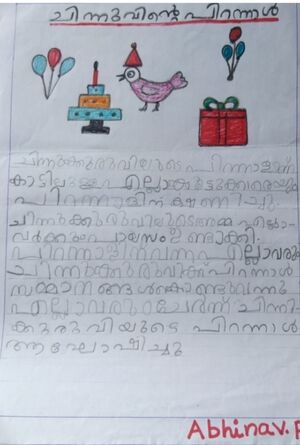 ചിന്നുവിന്റെ പിറന്നാൾ
ചിന്നുക്കുരുവിയുടെ പിറന്നാളാണ്
കാട്ടിലുള്ള എല്ലാ കൂട്ടുക്കാരെയും
പിറന്നാളിന് ക്ഷണിച്ചു.
ചിന്നുക്കുരുവിയുടെ അമ്മ എല്ലാ
വർക്കും പായസം ഉണ്ടാക്കി.
പിറന്നാളിന് വന്ന എല്ലാവരും
ചിന്നുക്കുരുവിക്ക് പിറന്നാൾ
സമ്മാനങ്ങൾ കൊണ്ടുവന്നു
എല്ലാവരും ചേർന്ന് ചിന്നു
ക്കുരുവിയുടെ പിറന്നാൾ
ആഘോഷിച്ചു
Abhinav.P